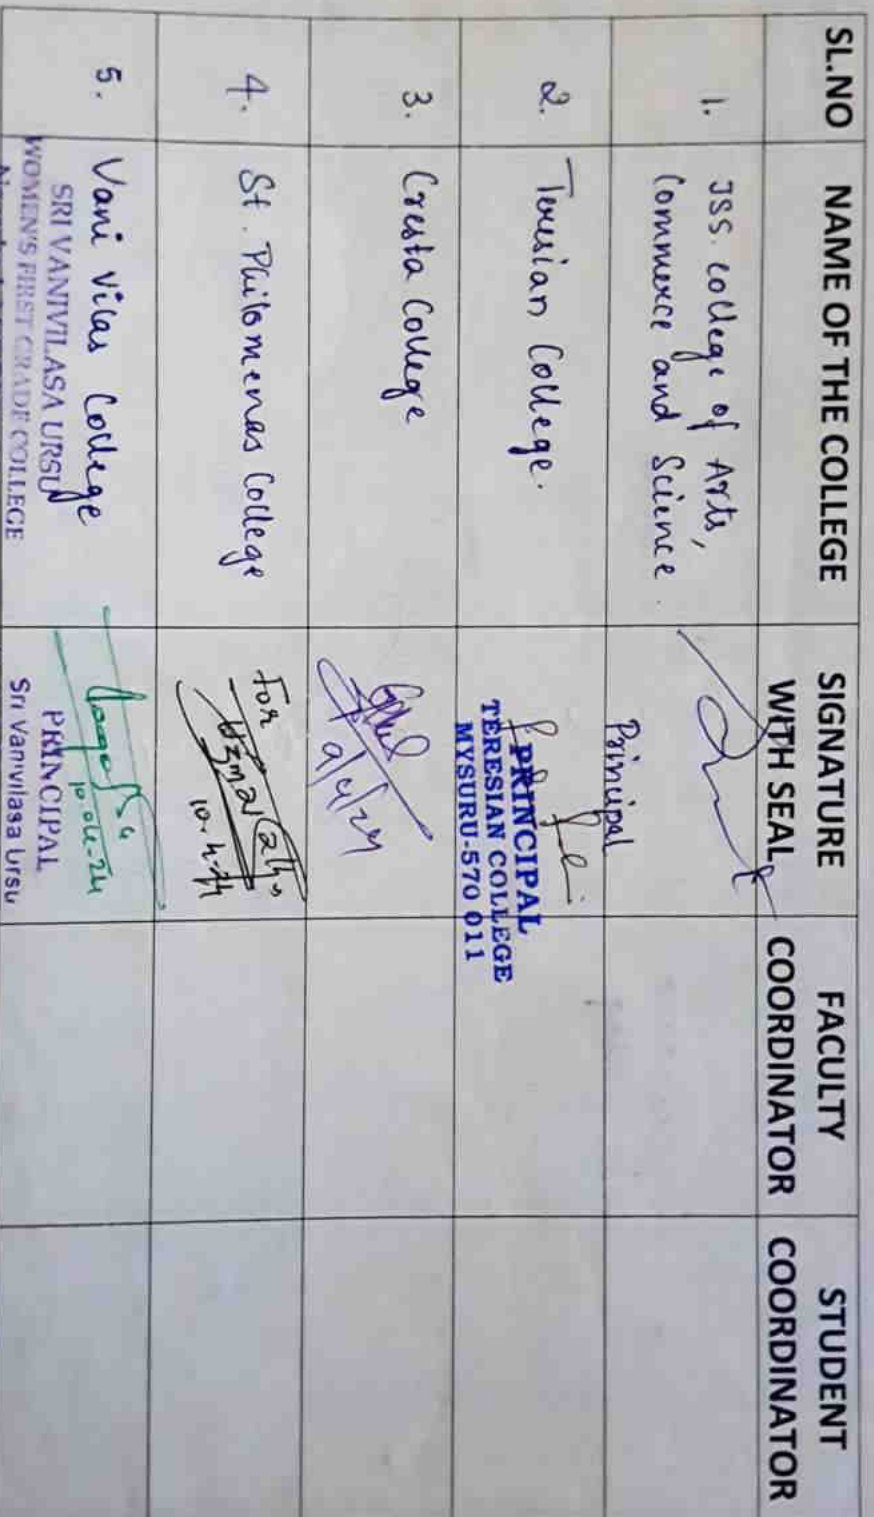 SL.NO NAME OF THE COLLEGE SIGNATURE WITH SEAL FACULTY COORDINATOR STUDENT COORDINATOR
1. JSS. College of Arts,
Commerce and Science.
Principal
2. Teresian College.
PRINCIPAL
TERESIAN COLLEGE
MYSURU-570 011
3. Cresta College
9/4/24
4. St. Philomenas College
For
10.4.24
5. Vani Vilas College
SRI VANIVILASA URSU
WOMEN'S FIRST GRADE COLLEGE
10.04.24
PRINCIPAL
Sri Vanivilasa Ursu